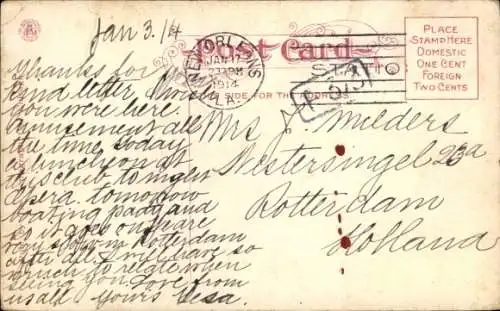 Jan 3. /14
Thanks for
kind letter. Would
you were here.
Amusement all
the time, today
a luncheon at
this club to night
Opera. tomorrow
boating party and
so it goes on. We are
in Rotterdam
after all. I will have so
much to relate when
seeing you. Love from
us all Yours Vesa.
Post Card
NEW ORLEANS
JAN 17
1914
LA.
SIDE FOR THE
PLACE
STAMP HERE
DOMESTIC
ONE CENT
FOREIGN
TWO CENTS
Mrs J. Mulders
Westersingel 23a
Rotterdam
Holland